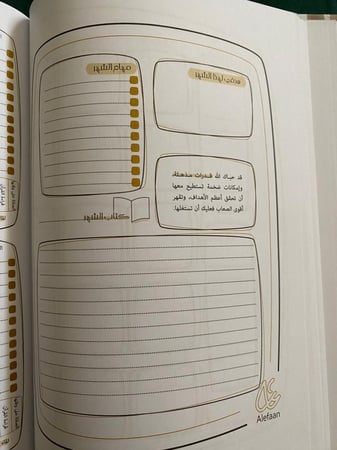 هدفي لهذا الشهر
مهام الشهر
قد حباك الله قدرات مذهلة،
وإمكانات ضخمة تستطيع معها
أن تحقق أعظم الأهداف، وتقهر
أقوى الصعاب فعليك أن تستغلها.
كتاب الشهر
Alefaan